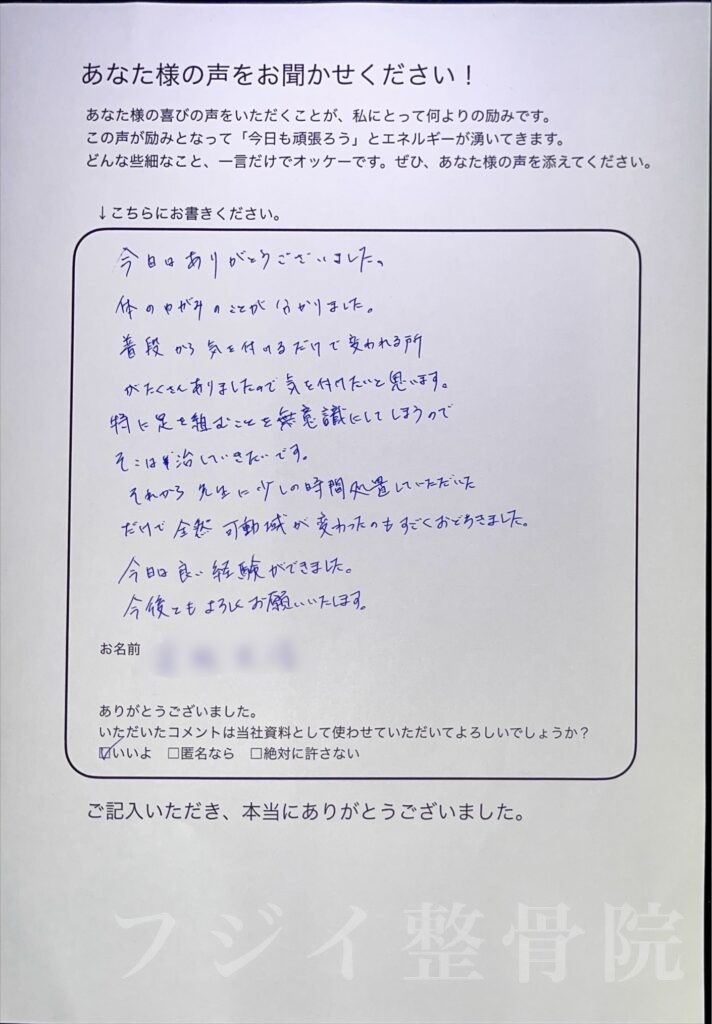 あなた様の声をお聞かせください！
あなた様の喜びの声をいただくことが、私にとって何よりの励みです。
この声が励みとなって「今日も頑張ろう」とエネルギーが湧いてきます。
どんな些細なこと、一言だけでオッケーです。ぜひ、あなた様の声を添えてください。
↓こちらにお書きください。
今日はありがとうございました。
体のゆがみのことが分かりました。
普段から気を付けるだけで変われる所
がたくさんありましたので気を付けたいと思います。
特に足を組むことを無意識にしてしまうので
そこは治していきたいです。
それから先生に少しの時間処置していただいた
だけで全然可動域が変わったのもすごくおどろきました。
今日は良い経験ができました。
今後ともよろしくお願いいたします。
お名前
ありがとうございました。
いただいたコメントは当社資料として使わせていただいてよろしいでしょうか？
☑いいよ　□匿名なら　□絶対に許さない
ご記入いただき、本当にありがとうございました。
フジイ整骨院